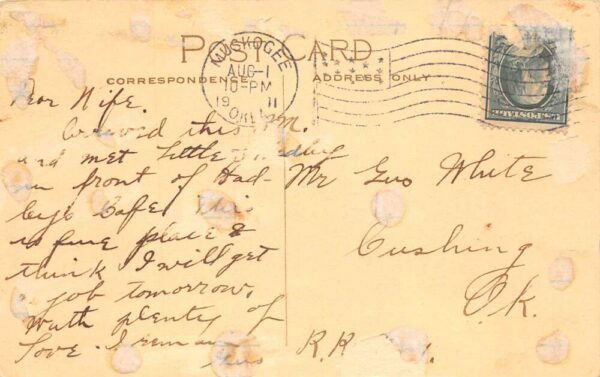 POST CARD
CORRESPONDENCE
ADDRESS ONLY
MUSKOGEE
AUG-1
10-PM
1911
OKLA
U.S. POSTAGE
Dear Wife.
Arrived this P.M.
and met Little
in front of Had-
ley's Cafe this
is fine place &
think I will get
a job tomorrow,
with plenty of
love. I remain
Mr Geo White
Cushing
Ok.
R.R.